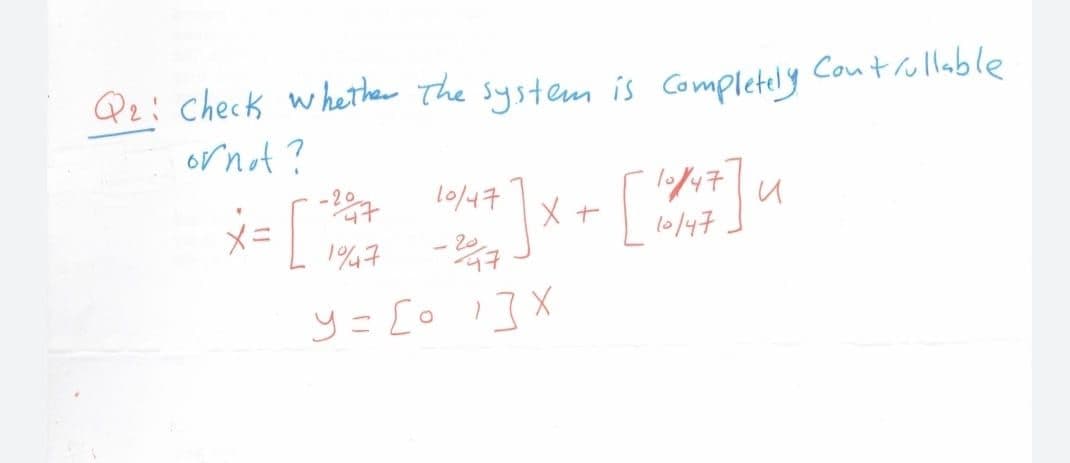 Q2: check whether The system is Completely Controllable
or not ?
ẋ = [ -20/47 10/47 ] x + [ 10/47 ] u
[ 10/47 -20/47 ] [ 10/47 ]
y = [0 1] x